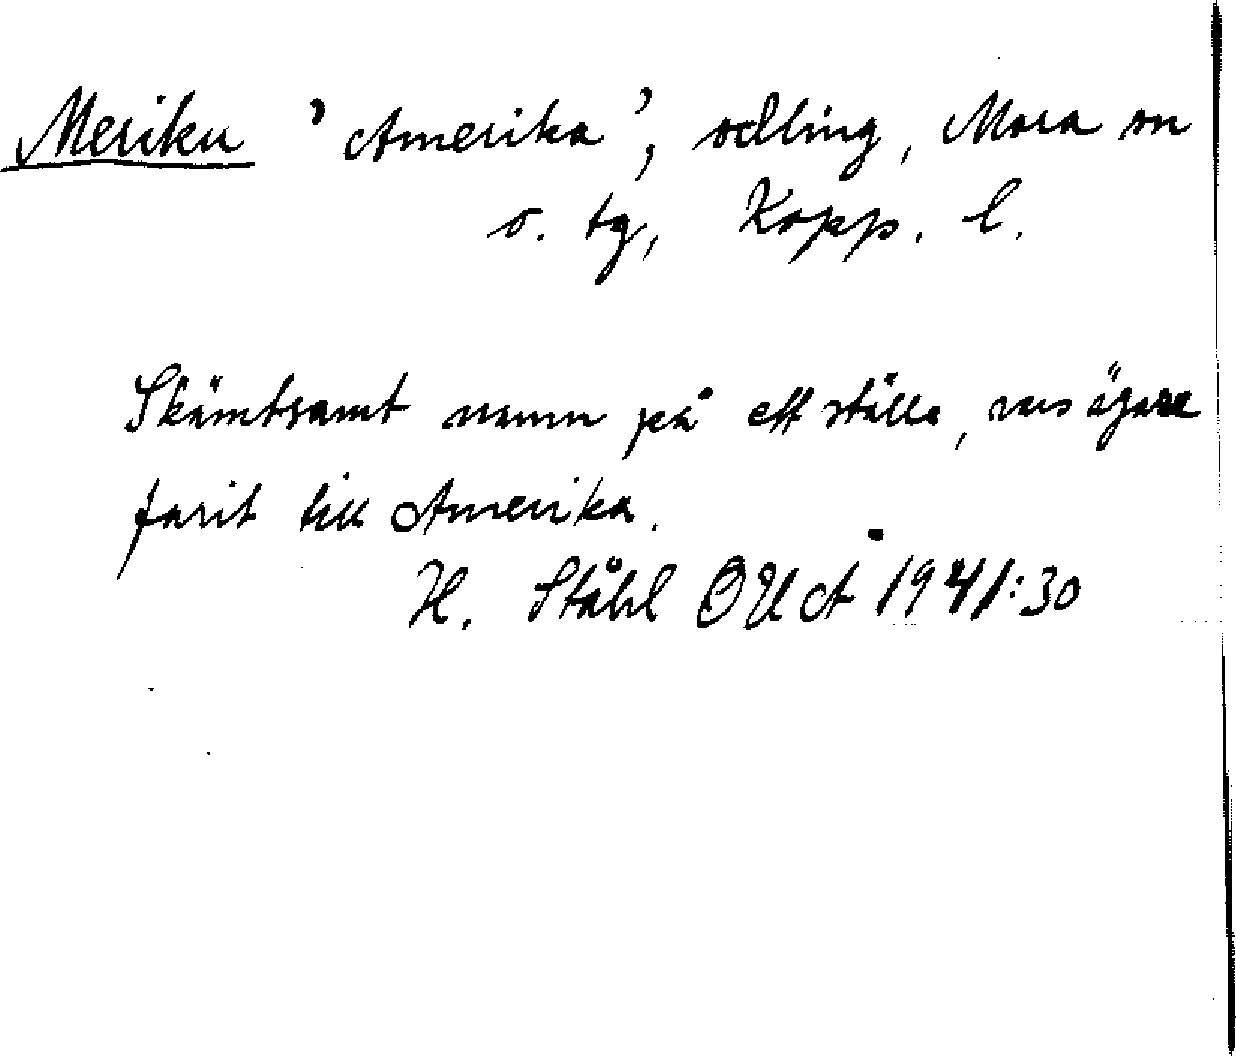 Meriku 'Amerika', odling, Mora sn
o. tg, Kopp. l.
Skämtsamt namn på ett ställe, vars ägare
farit till Amerika.
H. Ståhl OUA 1941:30